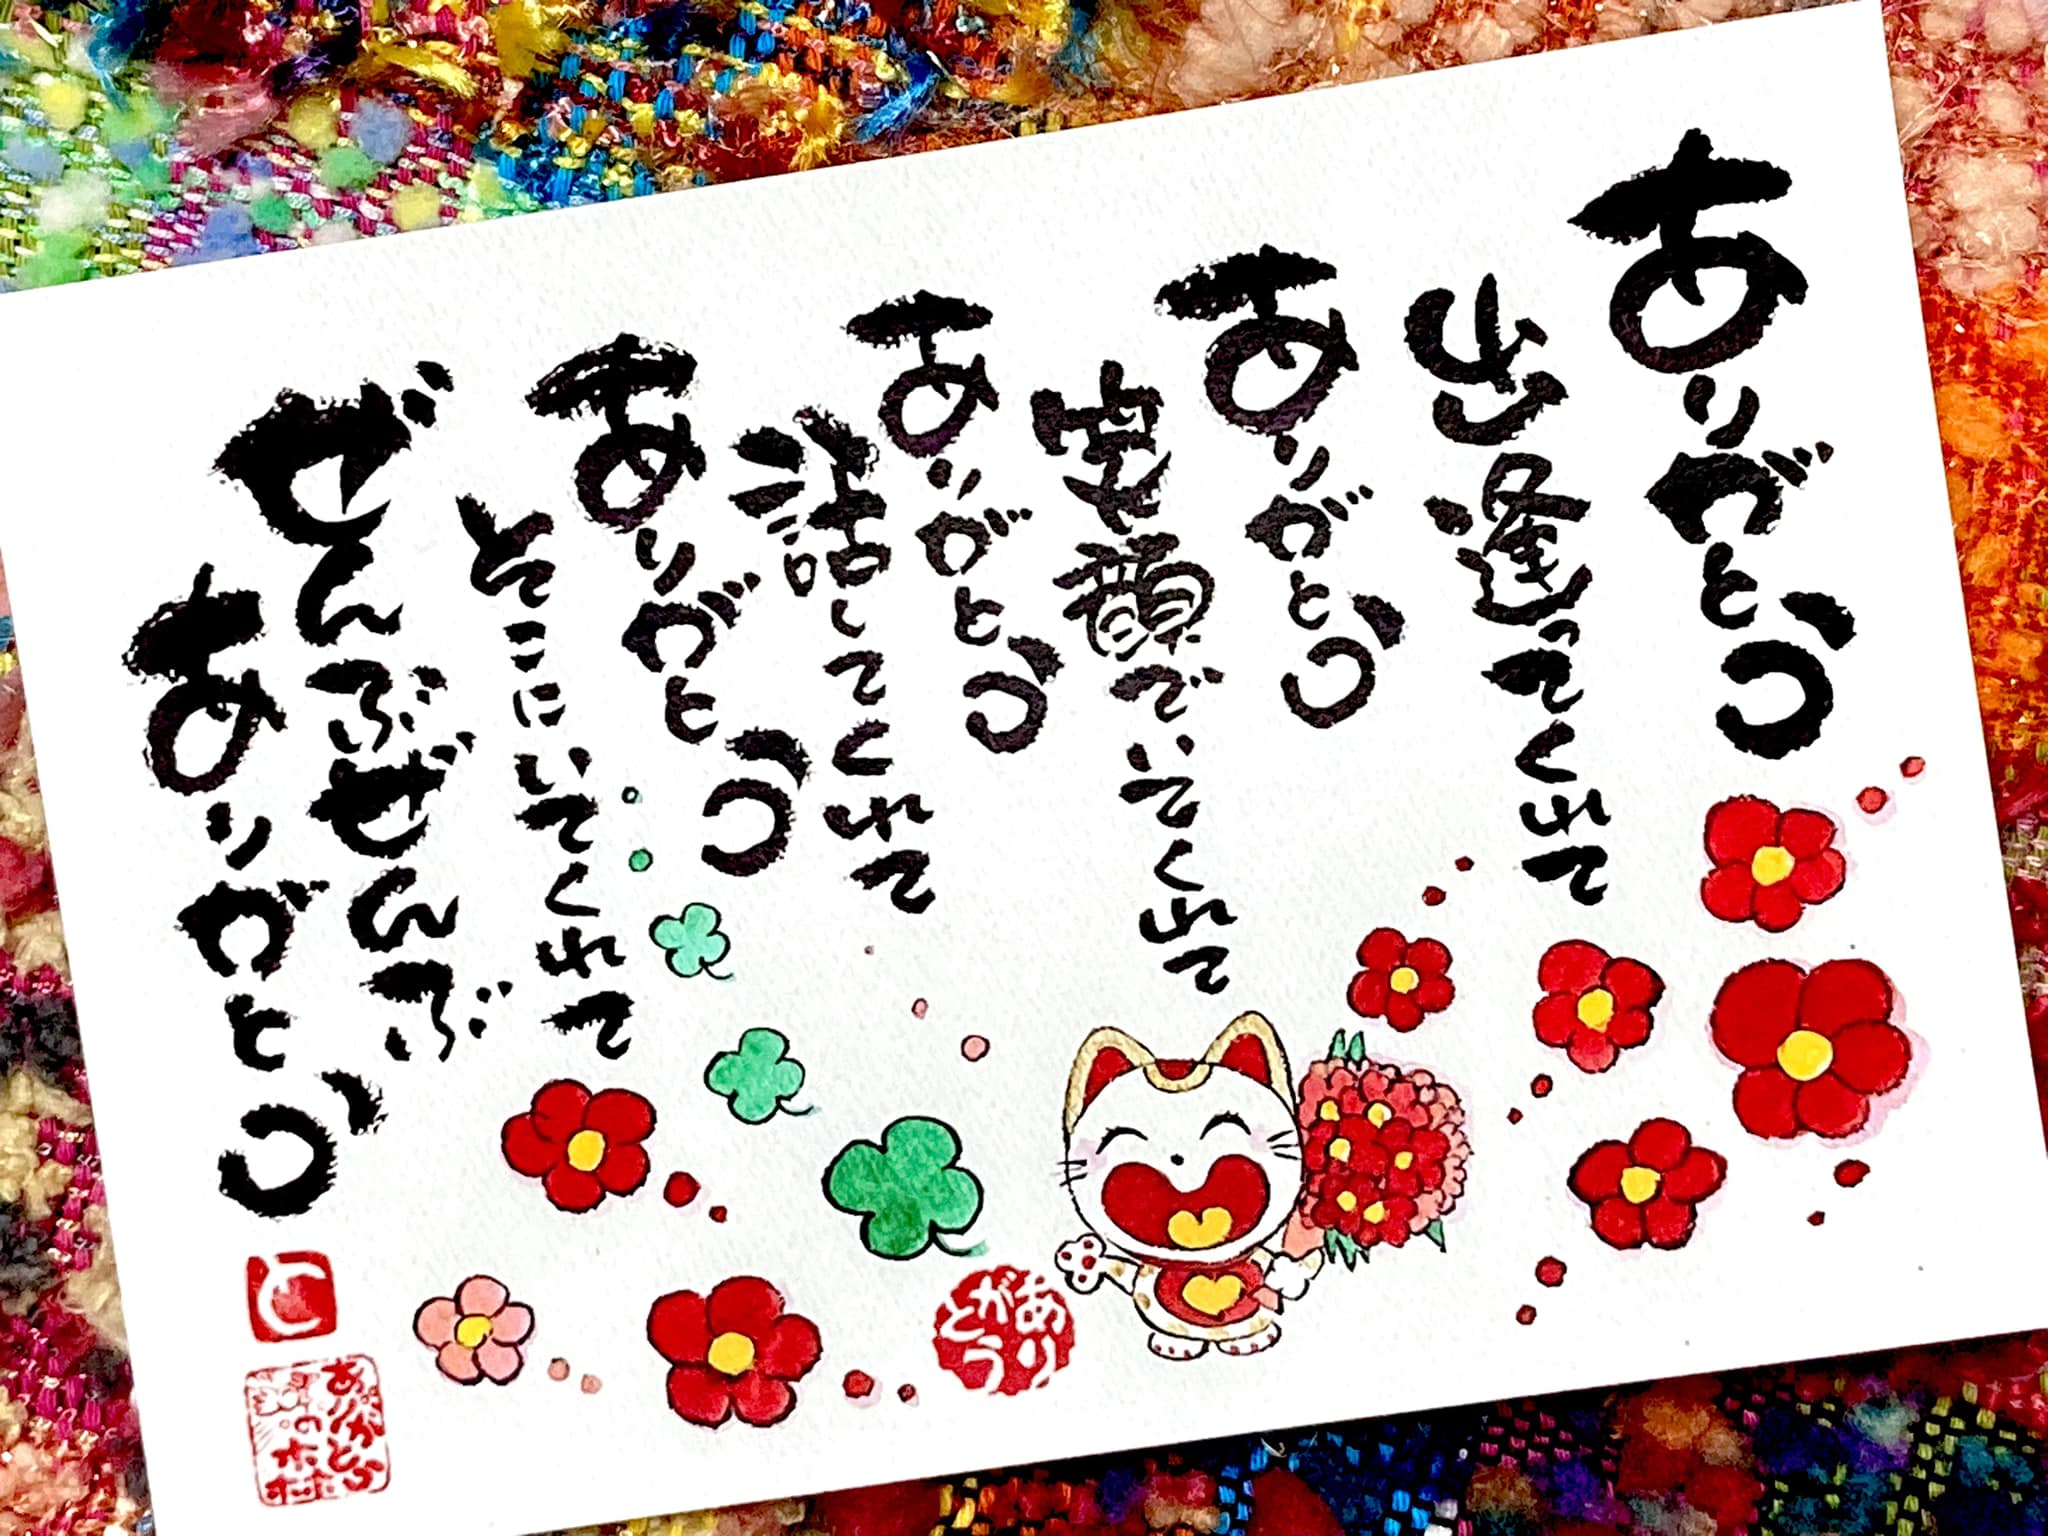 ありがとう
出逢ってくれて
ありがとう
笑顔でいてくれて
ありがとう
話してくれて
ありがとう
そこにいてくれて
ぜんぶぜんぶ
ありがとう
ありがとう
と
ありがとう
の木